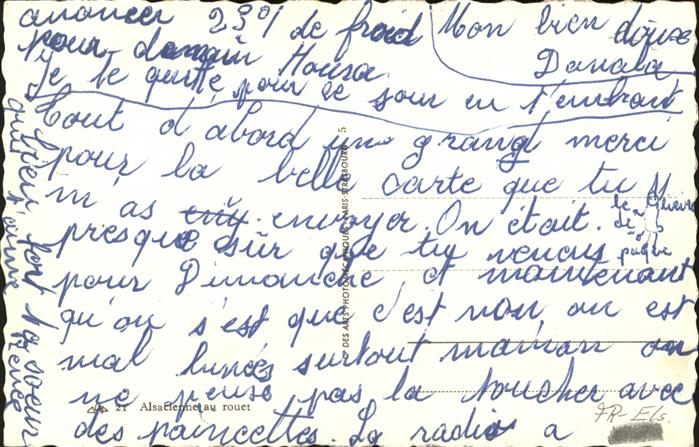 Mon bien douse
Danala
tout d'abord un grand merci
pour la belle carte que tu
m'as envoyer. On était
presque sûr que tu venais
pour Dimanche, et maintenant
qu'on s'est que c'est non, on est
mal lunés surtout maman on
ne peuse pas la toucher avec
des paincettes. La radio a
anoncer 23°1 de froid
pour demain Houra
Je te quitte pour ce soir en t'embrant
t'aime ta soeur
Renée
© DES ARTS PHOTOMÉCANIQUES - PARIS-STRASBOURG 5
21 Alsacienne au rouet
FR-Els.